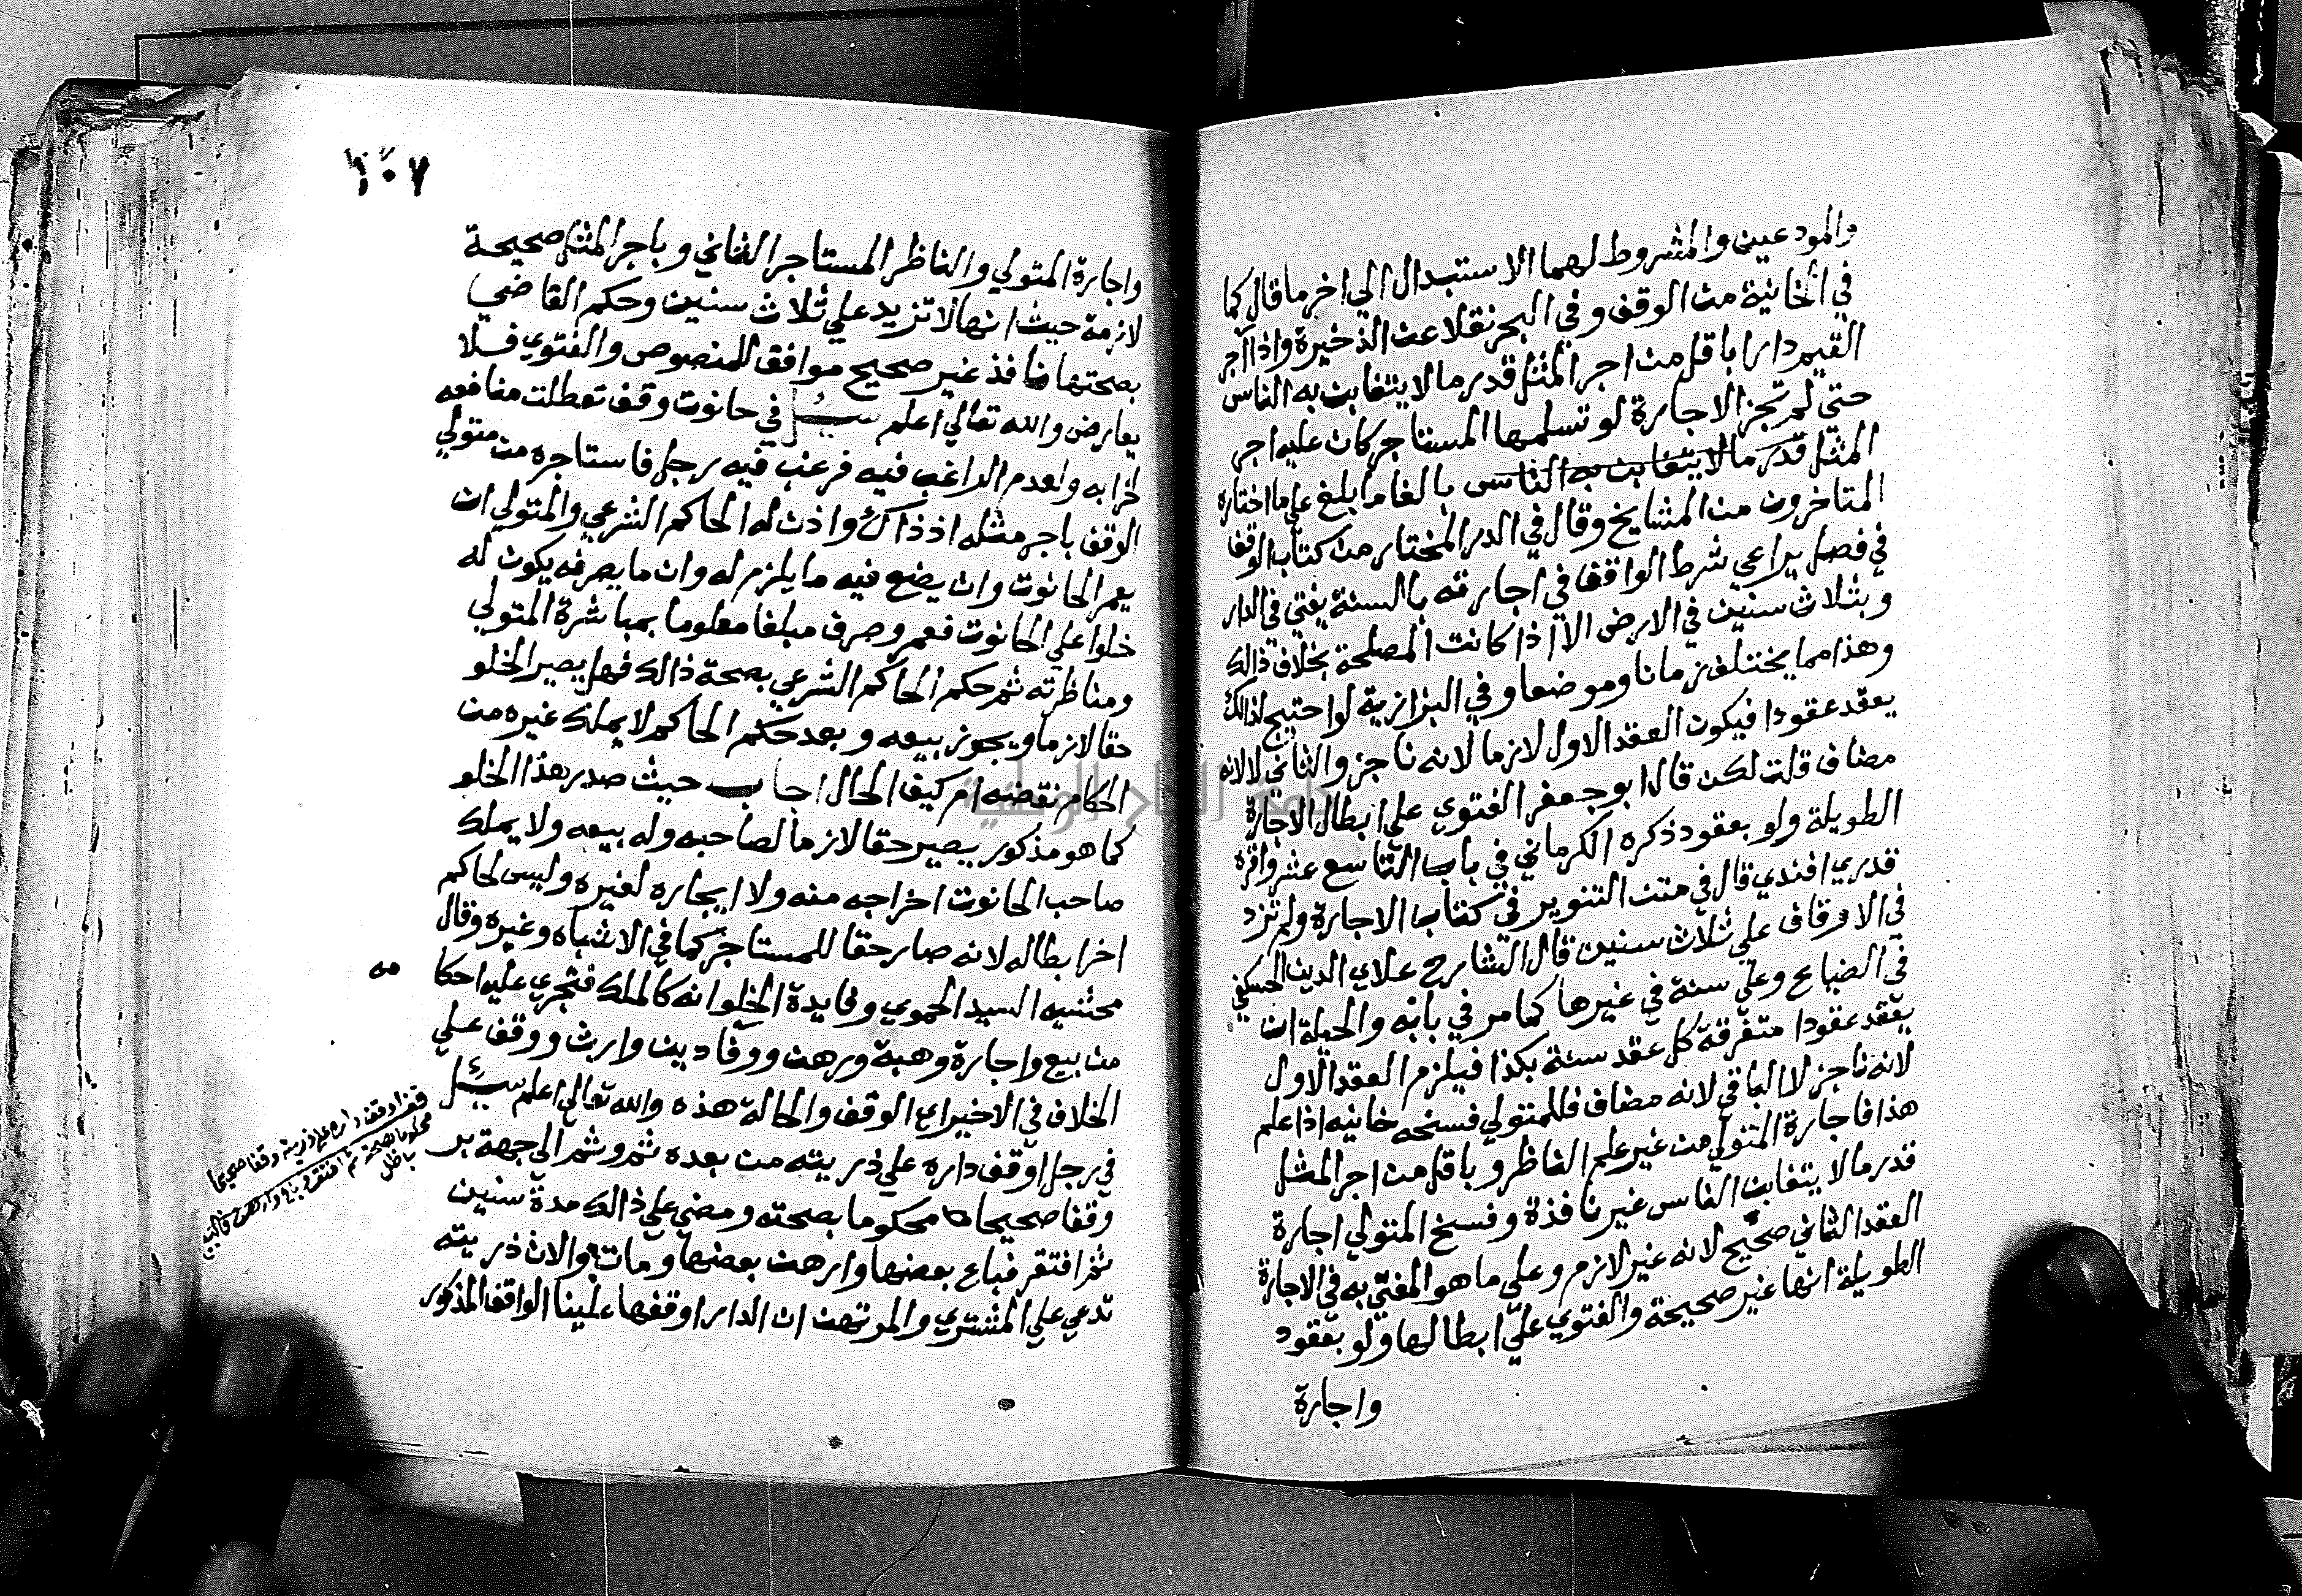 والمودعين والمشروط لهما الاستبدال الي اخر ما قال كما
في الخانية من الوقف وفي البحر نقلا عن الذخيرة واذا آجر
القيم دارا باقل من اجر المثل قدر ما لا يتغابن به الناس
حتي لم تجز الاجارة لو تسلمها المستاجر كان عليه اجر
المثل قدر ما لا يتغابن به الناس بالغا ما بلغ علي ما اختاره
المتاخرون من المشايخ وقال في الدر المختار من كتاب الوقف
في فصل يراعي شرط الواقف في اجارته بالسنة يفتي في الدار
وبثلاث سنين في الارض الا اذا كانت المصلحة بخلاف ذالك
وهذا مما يختلف زمانا وموضعا وفي البزازية لو احتيج لذالك
يعقد عقودا فيكون العقد الاول لازما لانه ناجز والثاني لا لانه
مضاف قلت لكن قال ابو جعفر الفتوي علي ابطال الاجارة
الطويلة ولو بعقود ذكره الكرماني في باب التاسع عشر واقره
قدري افندي قال في متن التنوير في كتاب الاجارة ولم تزد
في الاوقاف علي ثلاث سنين قال الشارح علاي الدين الحسكفي
في الضياع وعلي سنة في غيرها كما مر في بابه والحيلة ان
يعقد عقودا متفرقة كل عقد سنة بكذا فيلزم العقد الاول
لانه ناجز لا الباقي لانه مضاف فللمتولي فسخه خانيه اذا علم
هذا فاجارة المتولي من غير علم الناظر وباقل من اجر المثل
قدر ما لا يتغابن الناس غير نافذة وفسخ المتولي اجارة
العقد الثاني صحيح لانه غير لازم وعلي ما هو المفتي به في الاجارة
الطويلة انها غير صحيحة والفتوي علي ابطالها ولو بعقود
واجارة
١٠٧
واجارة المتولي والناظر المستاجر الثاني وباجر المثل صحيحة
لازمة حيث انها لا تزيد علي ثلاث سنين وحكم القاضي
بصحتها نافذ غير صحيح موافق للمنصوص والفتوي فلا
يعارض والله تعالي اعلم سئل في حانوت وقف تعطلت منافعه
لخرابه ولعدم الراغب فيه فرغب فيه رجل فاستاجره من متولي
الوقف باجر مثله اذ ذاك واذن له الحاكم الشرعي والمتولي ان
يعمر الحانوت وان يضع فيه ما يلزم له وان ما يصرفه يكون له
خلوا علي الحانوت فعمر وصرف مبلغا معلوما بمباشرة المتولي
ومناظرته ثم حكم الحاكم الشرعي بصحة ذالك فهل يصير الخلو
حقا لازما ويجوز بيعه وبعد حكم الحاكم لا يملك غيره من
الحكام نقضه ام كيف الحال اجاب حيث صدر هذا الخلو
كما هو مذكور يصير حقا لازما لصاحبه وله بيعه ولا يملك
صاحب الحانوت اخراجه منه ولا ايجاره لغيره وليس لحاكم
اخر ابطاله لانه صار حقا للمستاجر كما في الاشباه وغيره وقال
محشيه السيد الحموي وفايدة الخلو انه كالملك فتجري عليه احكا
مه
من بيع واجارة وهبة ورهن ووفا دين وارث ووقف علي
الخلاف في الاخير اي الوقف والحالة هذه والله تعالي اعلم سئل
في رجل اوقف داره علي ذريته من بعده ثم وثم الي جهة بر
وقفا صحيحا محكوما بصحته ومضي علي ذالك مدة سنين
ثم افتقر فباع بعضها وارهن بعضها ومات والان ذريته
تدعي علي المشتري والمرتهن ان الدار اوقفها علينا الواقف المذكور
قف اوقف داره علي ذريته وقفا صحيحا
محكوما بصحته ثم افتقر وباع وارهن فالبيع
باطل